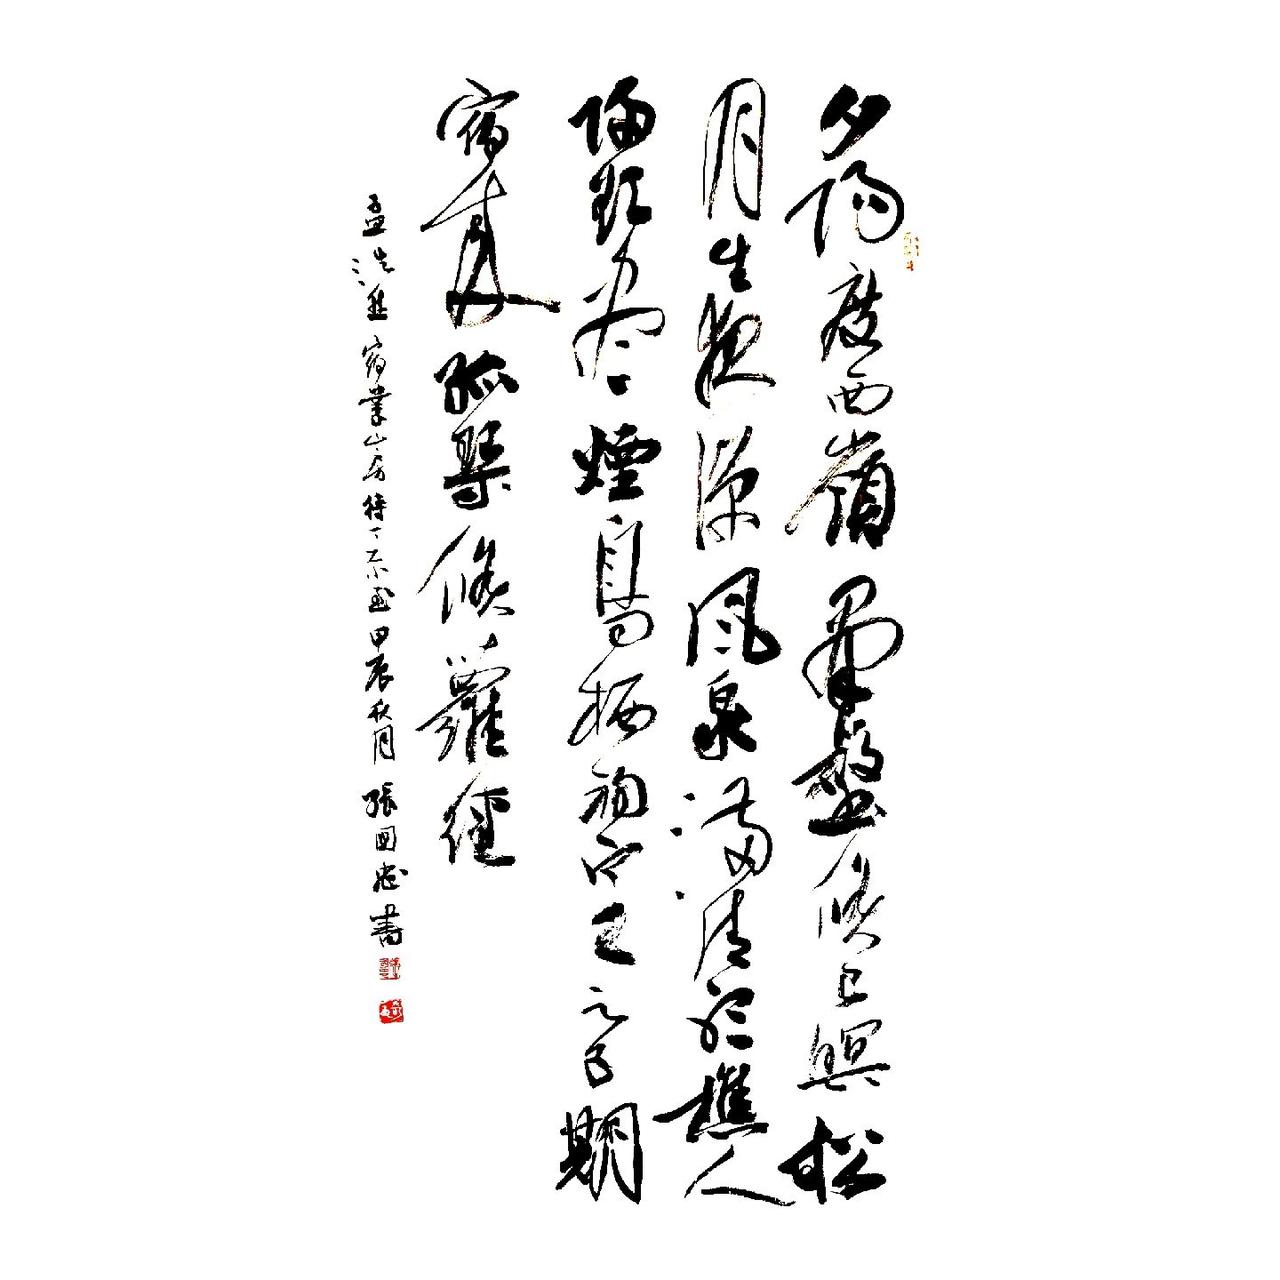 夕陽度西嶺群壑倏已暝松
月生夜涼風泉滿清聽樵人
歸欲盡煙鳥栖初定之子期
宿來孤琴候蘿徑
孟浩然宿業山房待丁大不至甲辰秋月張國忠書